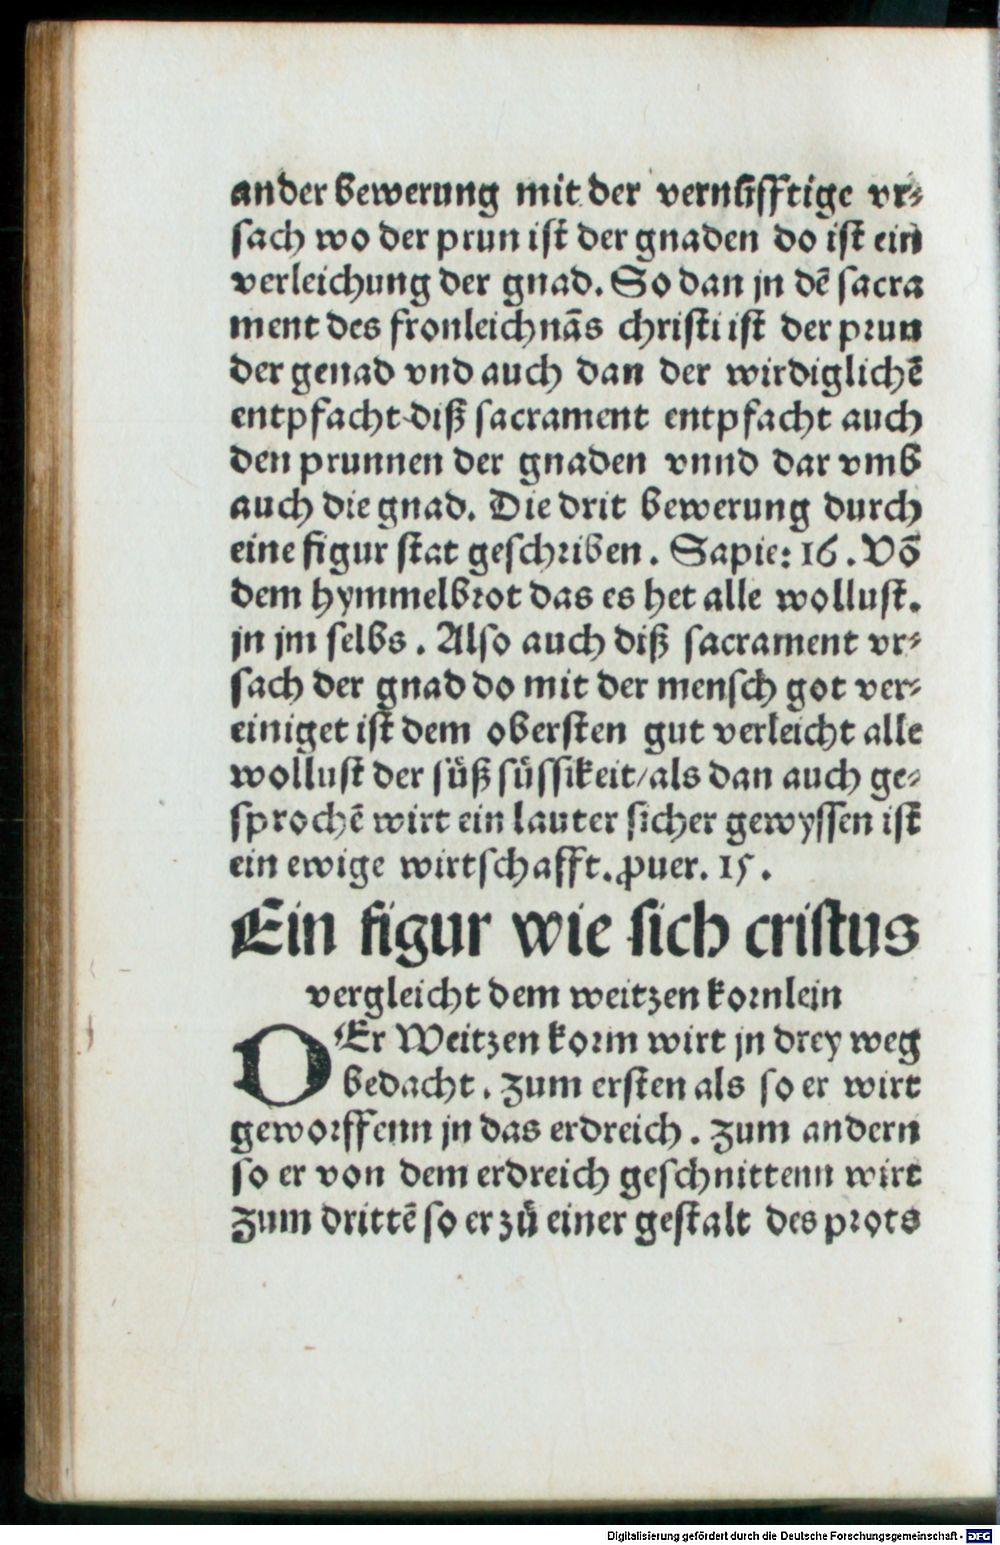 ander bewerung mit der vernůfftige vr⸗
sach wo der prun ist der gnaden do ist ein
verleichung der gnad. So dan jn dē sacra
ment des fronleichnās christi ist der prun
der genad vnd auch dan der wirdiglichē
entpfacht diß sacrament entpfacht auch
den prunnen der gnaden vnnd dar vmb
auch die gnad. Die drit bewerung durch
eine figur stat geschriben. Sapie: 16. Vō
dem hymmelbrot das es het alle wollust.
jn jm selbs. Also auch diß sacrament vr⸗
sach der gnad do mit der mensch got ver⸗
einiget ist dem obersten gut verleicht alle
wollust der süß süssikeit/als dan auch ge⸗
sprochē wirt ein lauter sicher gewyssen ist
ein ewige wirtschafft. ꝓuer. 15.
Ein figur wie sich cristus
vergleicht dem weitzen kornlein
DEr Weitzen korm wirt jn drey weg
bedacht. zum ersten als so er wirt
geworffenn jn das erdreich. zum andern
so er von dem erdreich geschnittenn wirt
zum drittē so er zů einer gestalt des prots
Digitalisierung gefördert durch die Deutsche Forschungsgemeinschaft - DFG